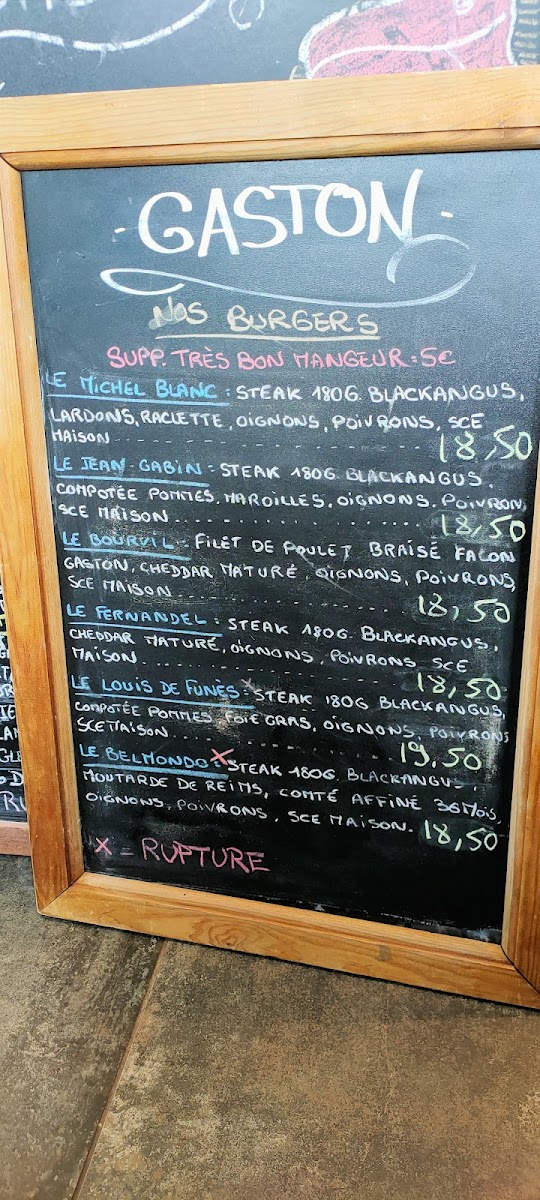 - GASTON -
NOS BURGERS
SUPP. TRÈS BON MANGEUR = 5€
LE MICHEL BLANC : STEAK 180G. BLACKANGUS,
LARDONS, RACLETTE, OIGNONS, POIVRONS, SCE
MAISON 18,50
LE JEAN-GABIN : STEAK 180G BLACKANGUS,
COMPOTÉE POMMES, MAROILLES, OIGNONS, POIVRON,
SCE MAISON 18,50
LE BOURVIL - FILET DE POULET BRAISÉ FACON
GASTON, CHEDDAR MATURÉ, OIGNONS, POIVRONS,
SCE MAISON 18,50
LE FERNANDEL : STEAK 180G. BLACKANGUS,
CHEDDAR MATURÉ, OIGNONS, POIVRONS, SCE
MAISON 18,50
LE LOUIS DE FUNÈS : STEAK 180G BLACKANGUS,
COMPOTÉE POMMES, FOIE GRAS, OIGNONS, POIVRONS
SCE MAISON 19,50
LE BELMONDO X STEAK 180G. BLACKANGUS,
MOUTARDE DE REIMS, COMTÉ AFFINÉ 36 MOIS,
OIGNONS, POIVRONS, SCE MAISON. 18,50
X = RUPTURE